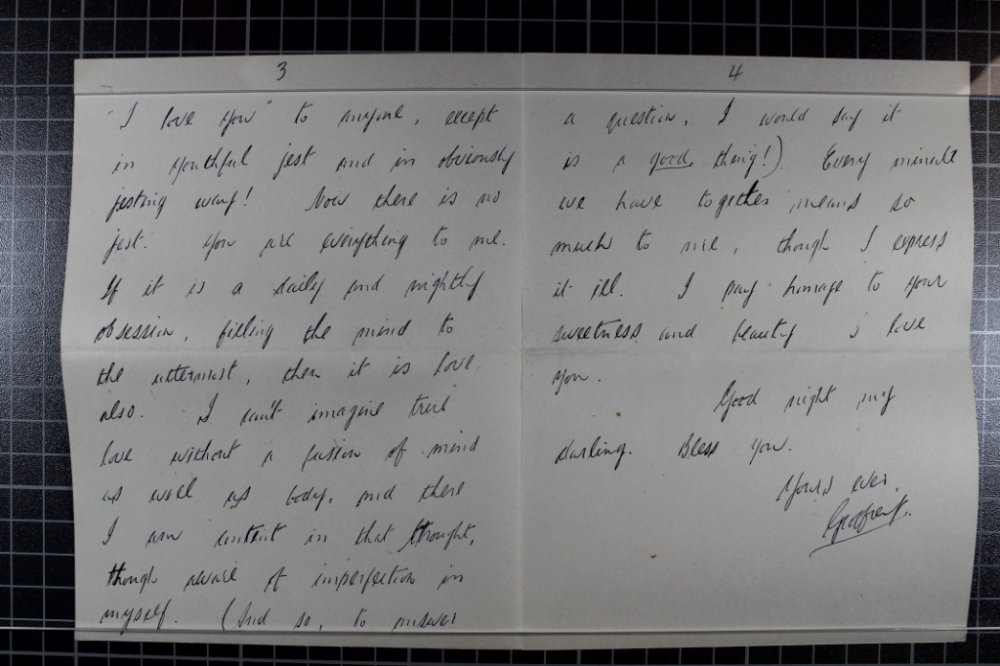 3
"I love you" to anyone, except
in youthful jest and in obviously
jesting way! Now there is no
jest. You are everything to me.
If it is a daily and nightly
obsession, filling the mind to
the uttermost, then it is love
also. I can't imagine true
love without a fusion of mind
as well as body, and there
I am content in that thought,
though aware of imperfection in
myself. (And so, to answer
4
a question, I would say it
is a good thing!) Every minute
we have together means so
much to me, though I express
it ill. I pay homage to your
sweetness and beauty I love
you.
Good night my
darling. Bless you.
Yours ever,
Godfrey.